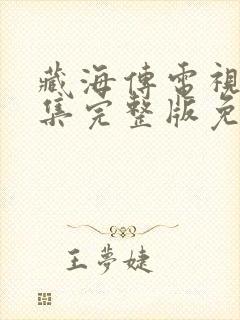 藏海傳電視
集完整版免
王夢婕